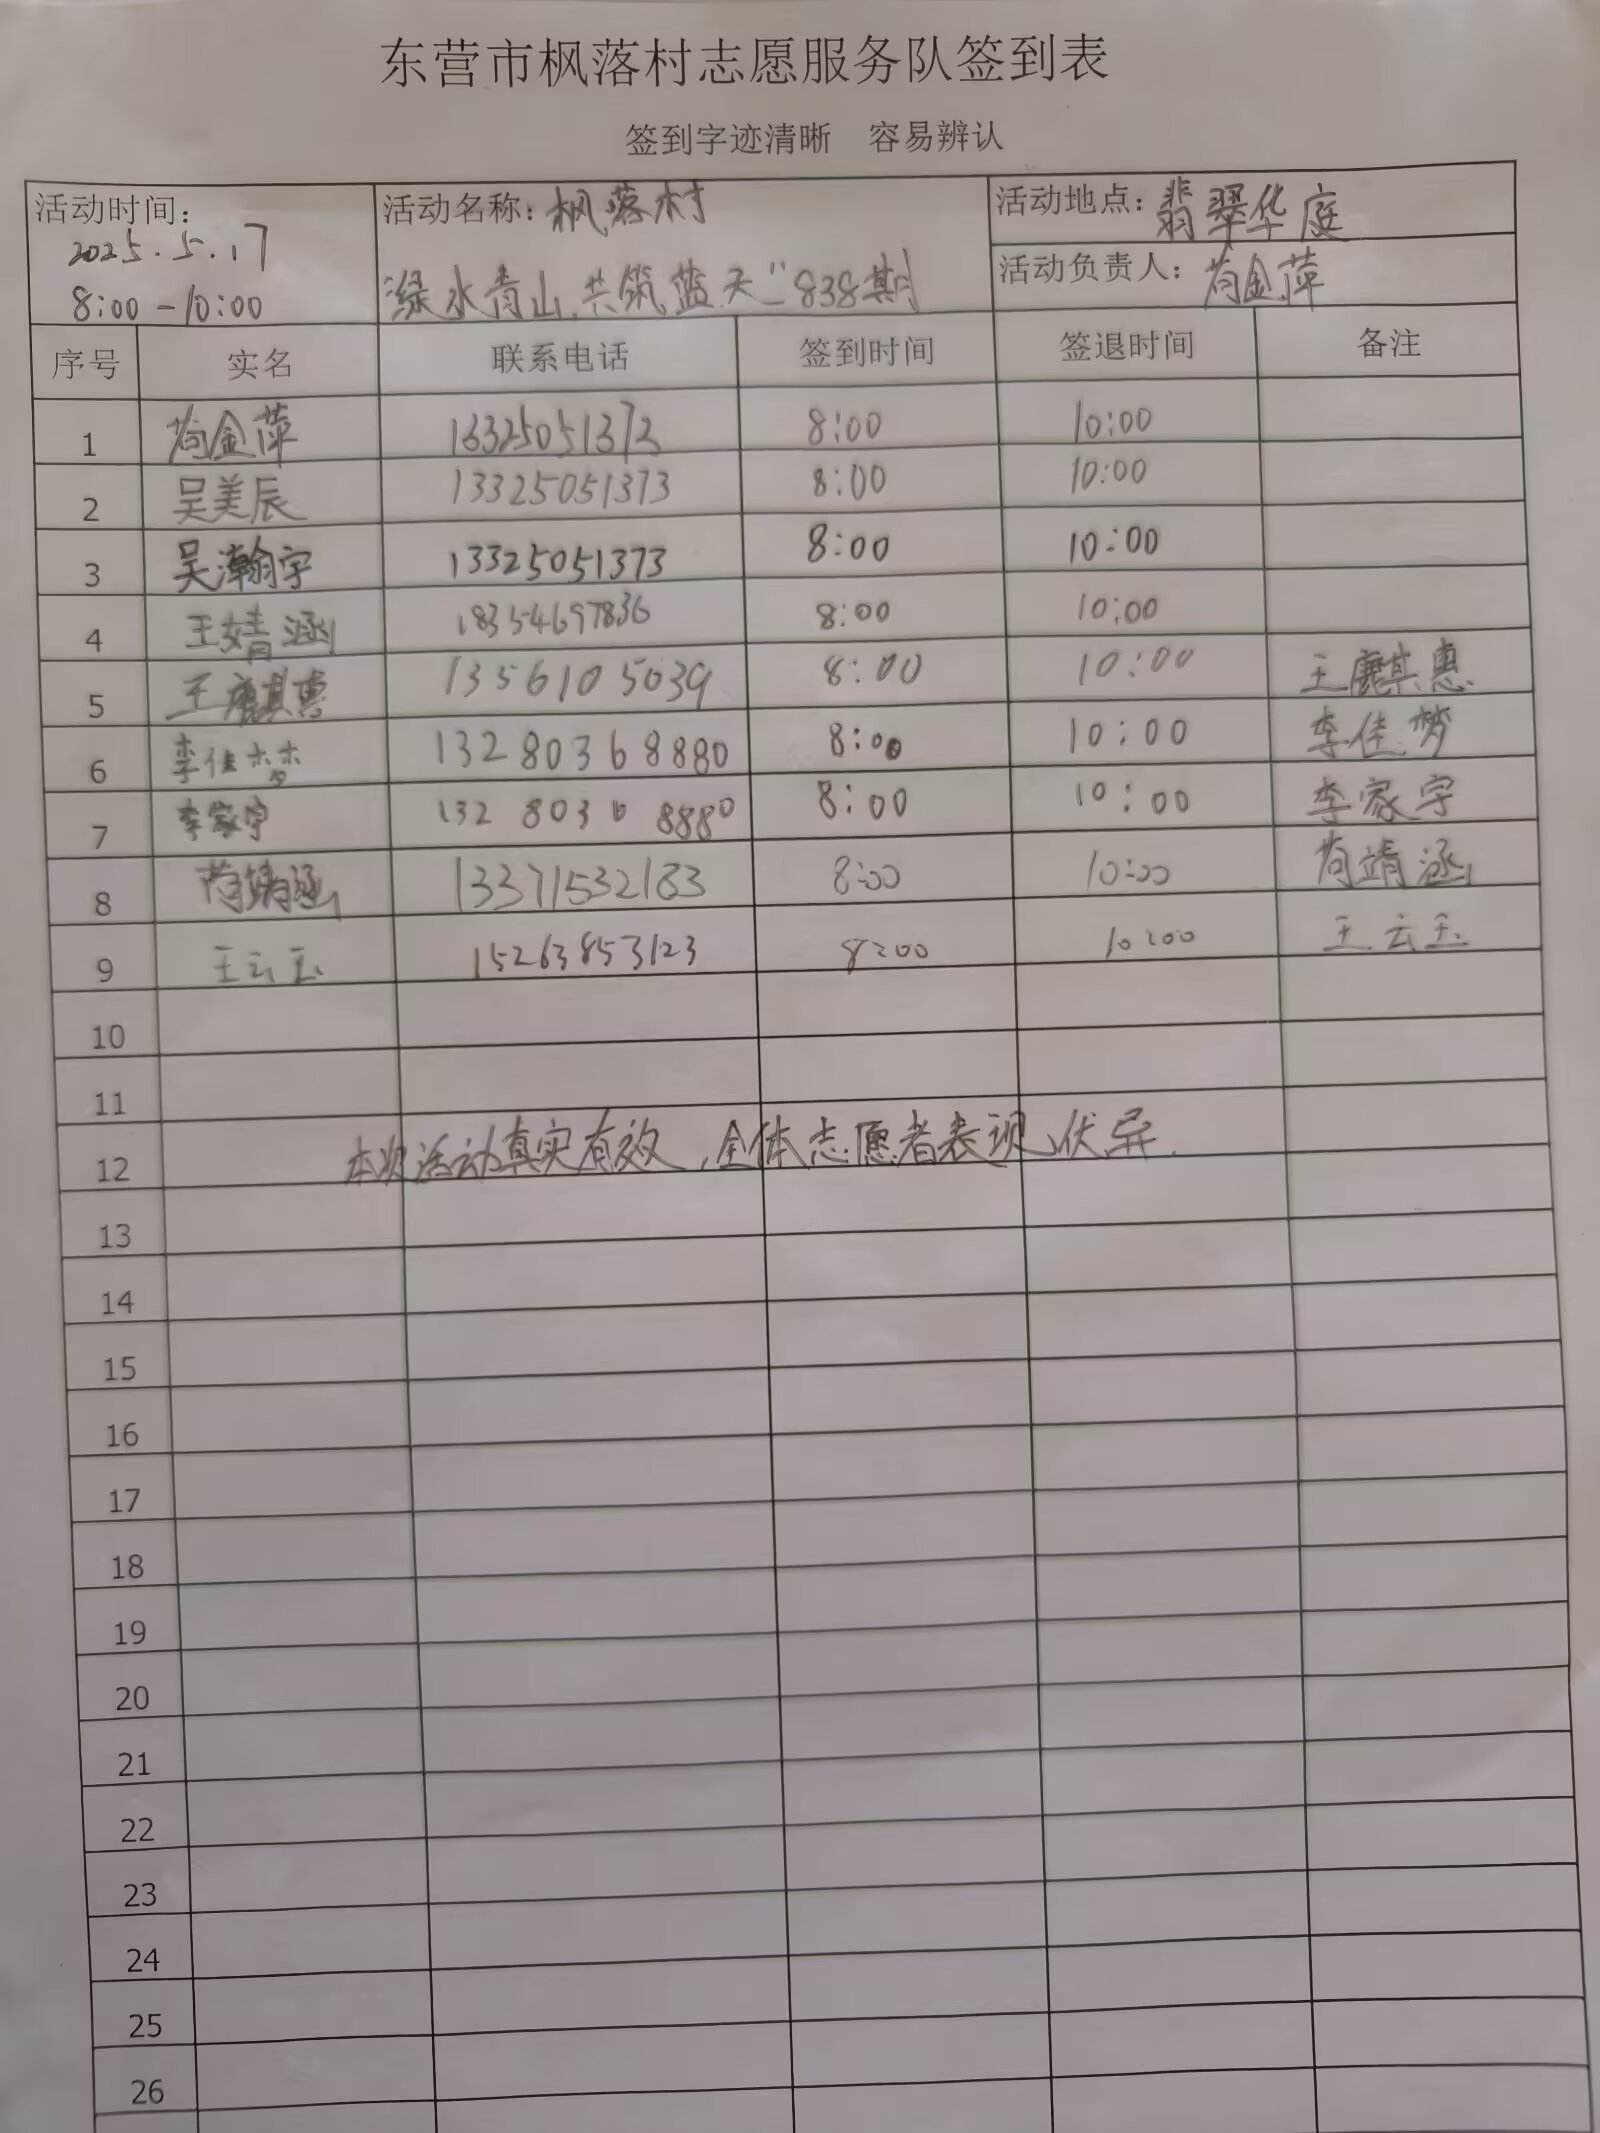 东营市枫落村志愿服务队签到表
签到字迹清晰 容易辨认
活动时间: 2025.5.17 8:00-10:00
活动名称: 枫落村
绿水青山,共筑蓝天"838期
活动地点: 翡翠华庭
活动负责人: 苟金萍
序号 实名 联系电话 签到时间 签退时间 备注
1 苟金萍 16325051373 8:00 10:00
2 吴美辰 13325051373 8:00 10:00
3 吴瀚宇 13325051373 8:00 10:00
4 王婧涵 18354697836 8:00 10:00
5 王麒惠 13561105039 8:00 10:00 王麒惠
6 李佳梦 13280368880 8:00 10:00 李佳梦
7 李家宇 132803 8880 8:00 10:00 李家宇
8 苟靖涵 13371532183 8:00 10:00 苟靖涵
9 王云玉 15263853123 8:00 10:00 王云玉
10
11
12 本次活动真实有效,全体志愿者表现优异.
13
14
15
16
17
18
19
20
21
22
23
24
25
26